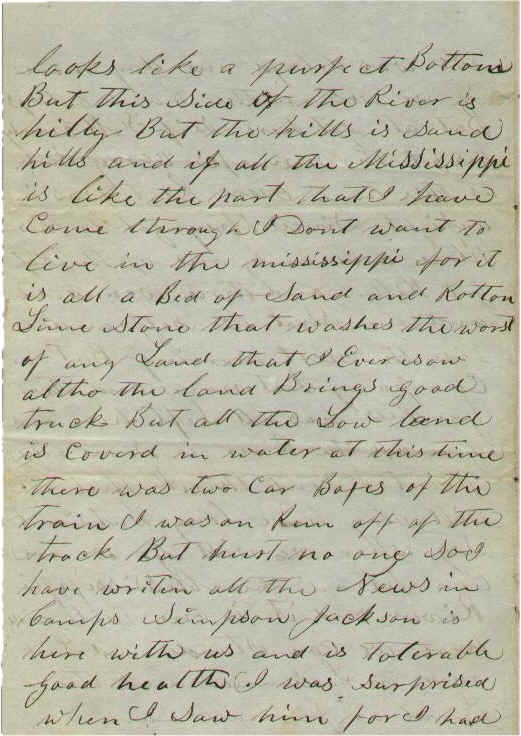 looks like a purfect Bottom
But this Side of the River is
hilly But the hills is Sand
hills and if all the Mississippi
is like the part that I have
Come through I Dont want to
live in the mississippi for it
is all a Bed of Sand and Rotton
Lime Stone that washes the worst
of any Land that I Ever saw
altho the land Brings good
truck But all the Low land
is Coverd in water at this time
there was two Car Boxes of the
train I was on Run off of the
track But hurt no one So I
have writen all the News in
Camps Simpson Jackson is
here with us and is tolerable
good health I was Surprised
when I Saw him for I had